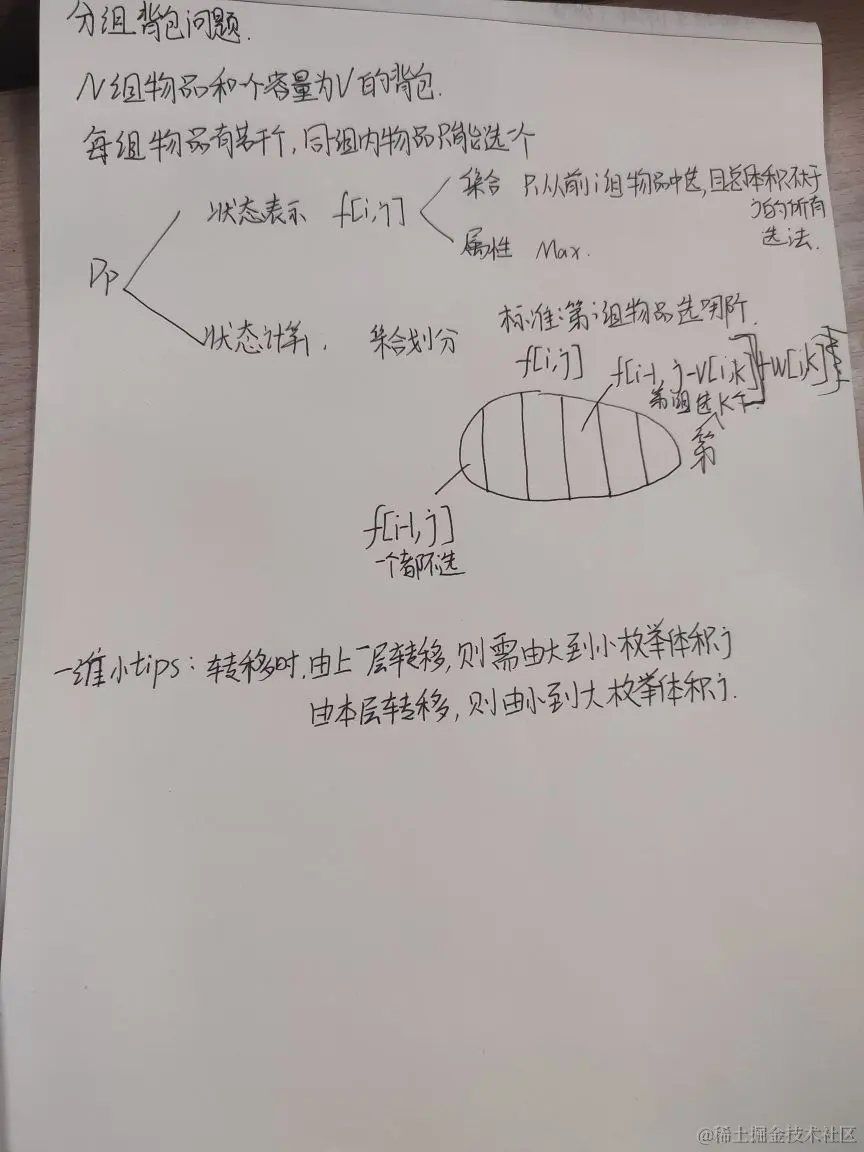 分组背包问题.
N组物品和个容量为V的背包.
每组物品有若干个,同组内物品只能选一个
集合 只从前i组物品中选,且总体积不大于
j的所有
选法.
状态表示 f[i,j]
属性 Max.
DP
标准:第i组物品选哪个.
状态计算. 集合划分
f[i,j] f[i-1, j-v[i,k]]+w[i,k]
第i组选k个.
第
f[i-1,j]
一个都不选
一维小tips:转移时,由上一层转移,则需由大到小枚举体积j
由本层转移,则由小到大枚举体积j.
@稀土掘金技术社区